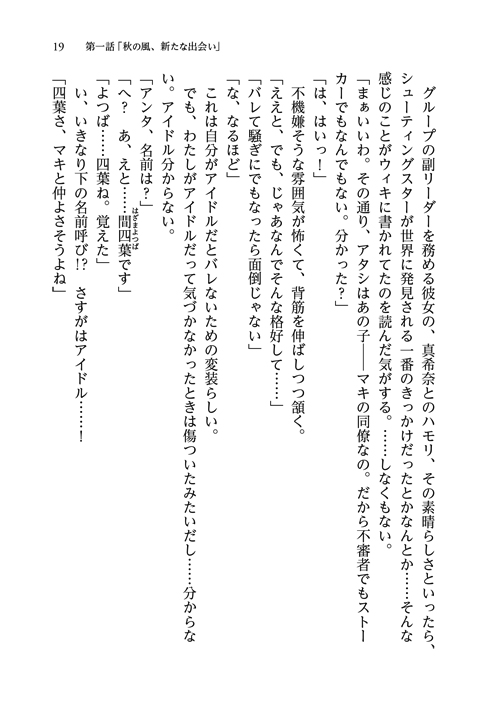 19　第一話「秋の風、新たな出会い」
　グループの副リーダーを務める彼女の、真希奈とのハモリ、その素晴らしさといったら、
シューティングスターが世界に発見される一番のきっかけだったとかなんとか……そんな
感じのことがウィキに書かれてたのを読んだ気がする。……しなくもない。
「まぁいいわ。その通り、アタシはあの子――マキの同僚なの。だから不審者でもストー
カーでもなんでもない。分かった？」
「は、はいっ！」
　不機嫌そうな雰囲気が怖くて、背筋を伸ばしつつ頷く。
「ええと、でも、じゃあなんでそんな格好して……」
「バレて騒ぎにでもなったら面倒じゃない」
「な、なるほど」
　これは自分がアイドルだとバレないための変装らしい。
　でも、わたしがアイドルだって気づかなかったときは傷ついたみたいだし……分からな
い。アイドル分からない。
「アンタ、名前は？」
「へ？　あ、えと……間四葉です」
はざまよつば
「よつば……四葉ね。覚えた」
　い、いきなり下の名前呼び!?　さすがはアイドル……！
「四葉さ、マキと仲よさそうよね」